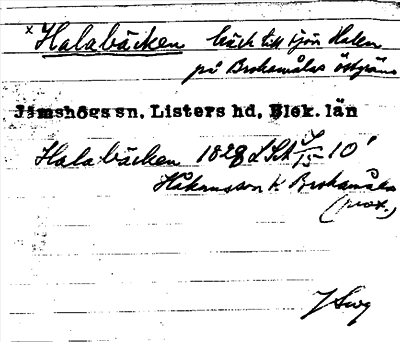 x Halabäcken bäck till sjön Halen
på Brokamålas östgräns
Jämshögs sn. Listers hd, Blek. län
Halabäcken 1828 LSA J/15 10'
Håkansson k Brokamåla
(prox.)